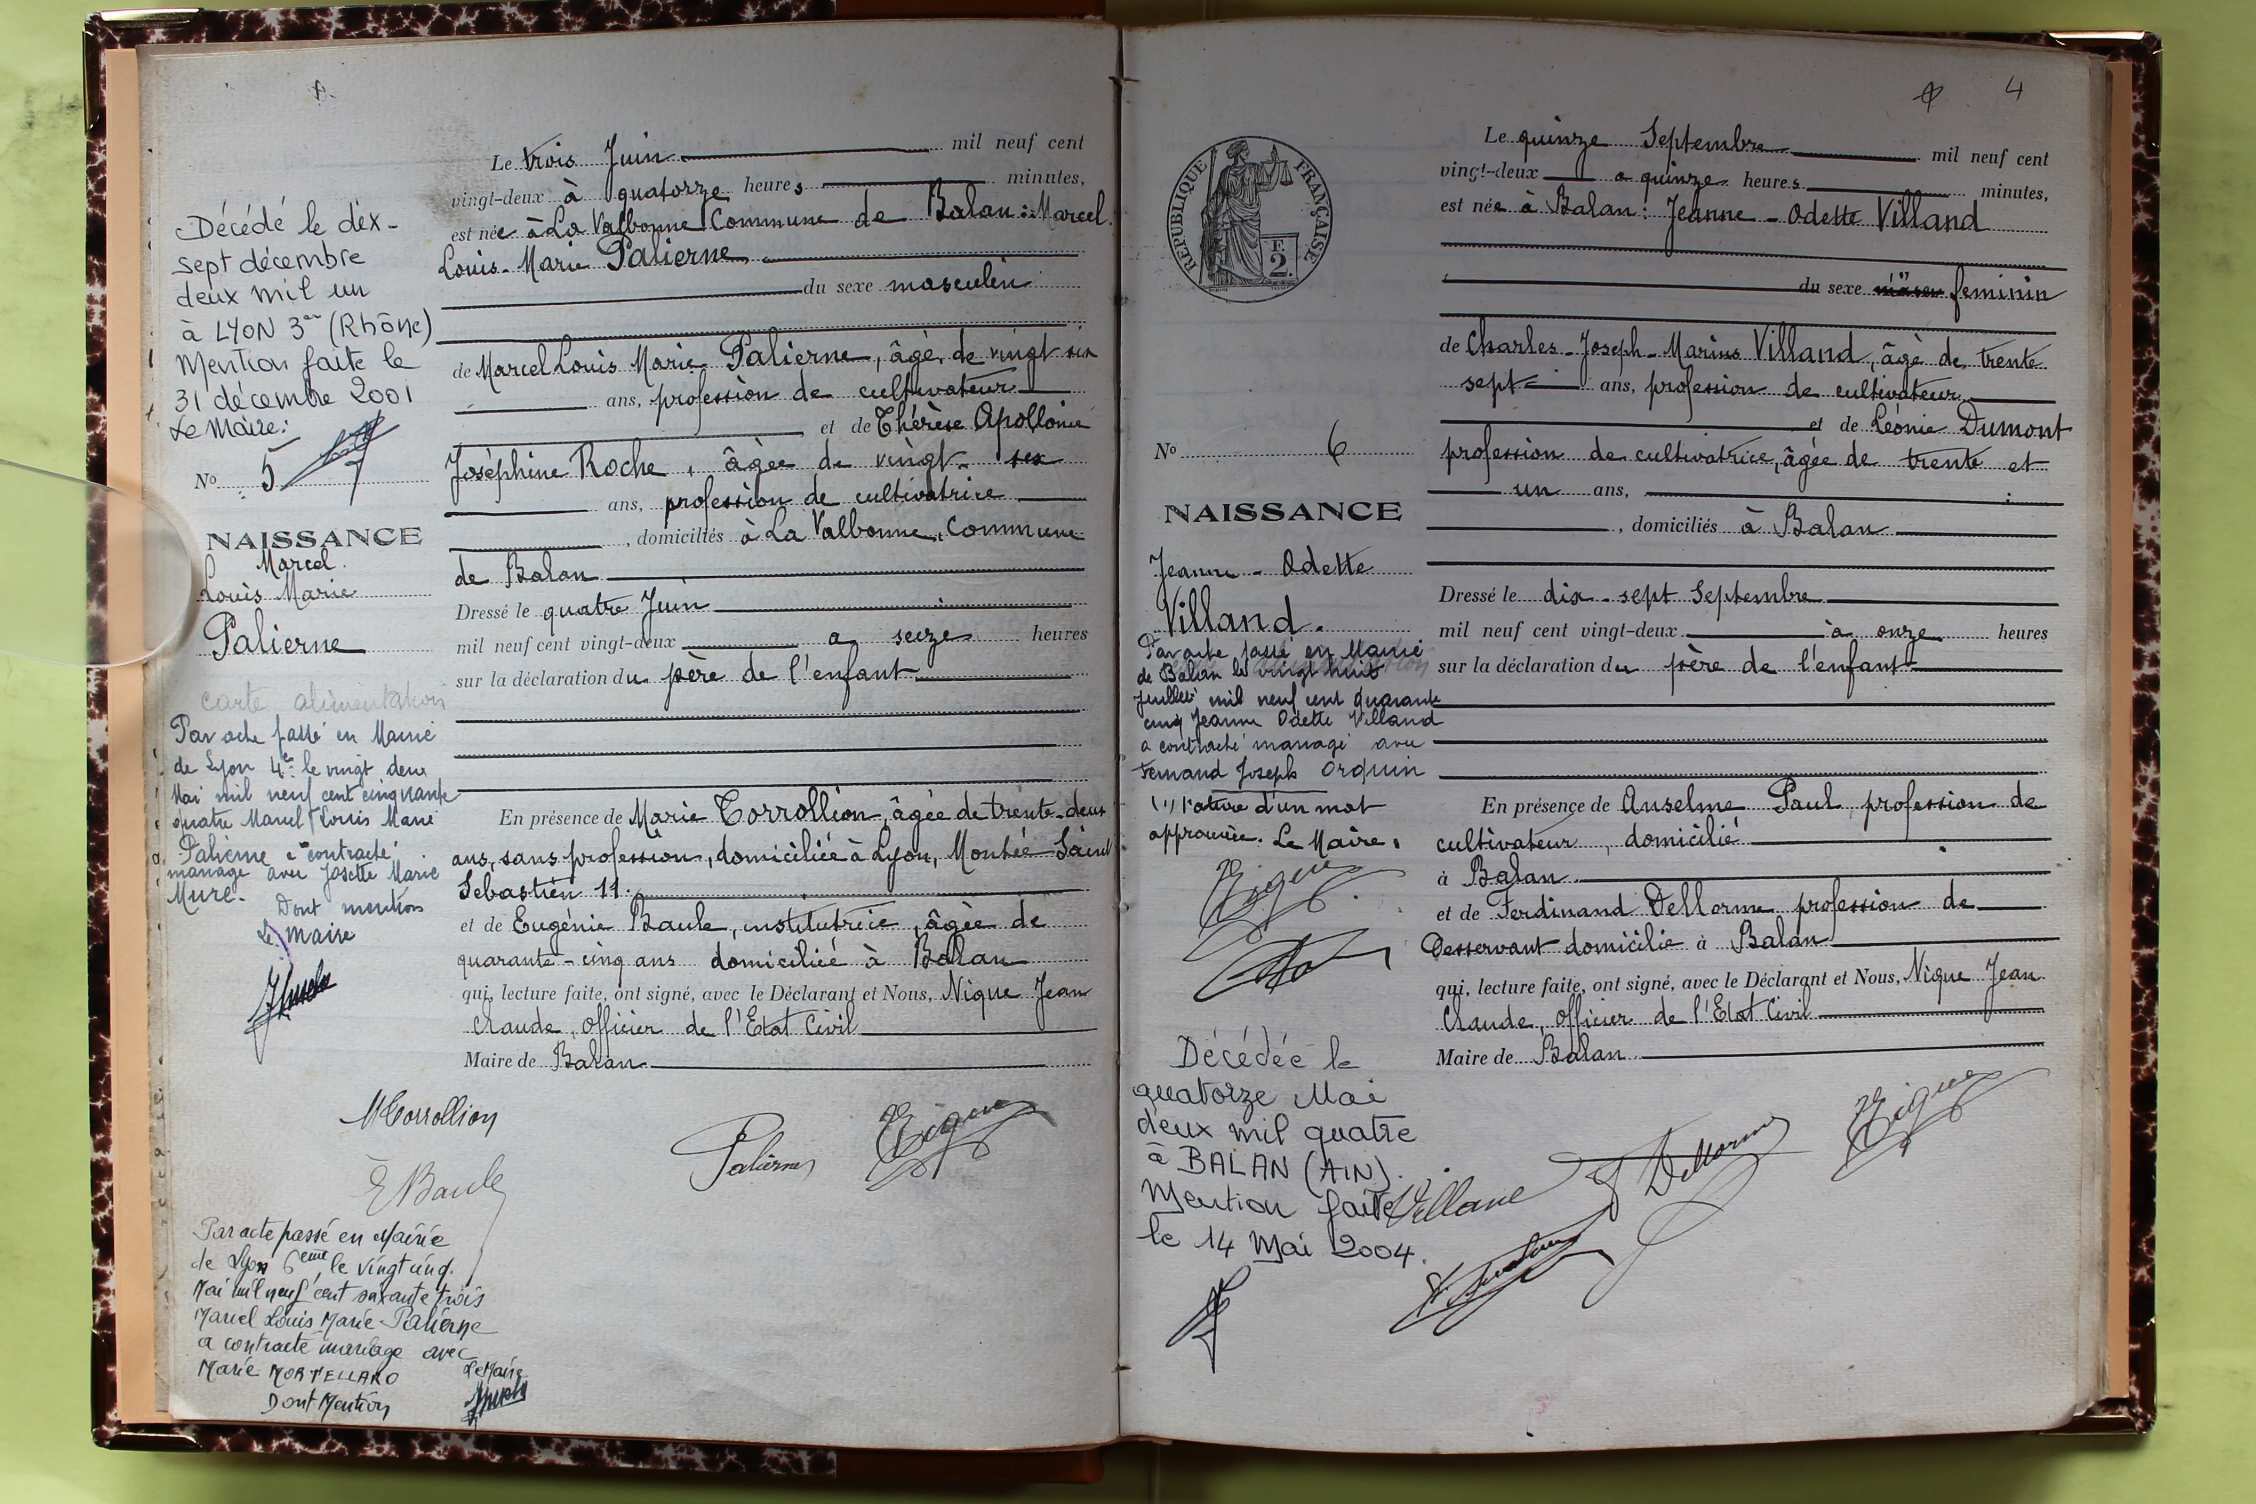 Décédé le dix-
sept décembre
deux mil un
à LYON 3e (Rhône)
Mention faite le
31 décembre 2001
Le Maire:
No 5
NAISSANCE
Marcel
Louis Marie
Palierne
carte alimentation
Par acte passé en Mairie
de Lyon 4e le vingt deux
Mai mil neuf cent cinquante
quatre Marcel Louis Marie
Palierne a contracté
mariage avec Josette Marie
Mure.
Dont mention
Le Maire
Le trois Juin mil neuf cent
vingt-deux à quatorze heures minutes,
est née à La Valbonne Commune de Balan : Marcel
Louis Marie Palierne
du sexe masculin
de Marcel Louis Marie Palierne, âgé de vingt six
ans, profession de cultivateur
et de Thérèse Apollonie
Joséphine Roche, âgée de vingt-six
ans, profession de cultivatrice
, domiciliés à La Valbonne, Commune
de Balan
Dressé le quatre Juin
mil neuf cent vingt-deux a seize heures
sur la déclaration du père de l'enfant
En présence de Marie Corrollion, âgée de trente-deux
ans, sans profession, domiciliée à Lyon, Montée Saint
Sebastien 11.
et de Eugénie Baule, institutrice, âgée de
quarante-cinq ans domiciliée à Balan
qui, lecture faite, ont signé, avec le Déclarant et Nous, Nique Jean
Claude, Officier de l'Etat Civil
Maire de Balan
M Corrollion
E Baule
Palierne
Nique
Par acte passé en Mairie
de Lyon 6eme le vingt cinq
Mai mil neuf cent soixante trois
Marcel Louis Marie Palierne
a contracté mariage avec
Marie MORTELLARO
Le Maire
Dont Mention
4
RÉPUBLIQUE FRANÇAISE
F.
2.
No 6
NAISSANCE
Jeanne-Odette
Villand.
Par acte passé en Mairie
de Balan le vingt huit
Juillet mil neuf cent quarante
cinq Jeanne Odette Villand
a contracté mariage avec
Fernand Joseph Orquin
(1) rature d'un mot
approuvée. Le Maire,
Nique
Décédée le
quatorze Mai
deux mil quatre
à BALAN (AIN).
Mention faite
le 14 Mai 2004.
Le quinze Septembre mil neuf cent
vingt-deux a quinze heures minutes,
est née à Balan : Jeanne-Odette Villand
du sexe feminin
de Charles-Joseph-Marius Villand, âgé de trente
sept ans, profession de cultivateur
et de Léonie Dumont
profession de cultivatrice, âgée de trente et
un ans,
, domiciliés à Balan
Dressé le dix-sept Septembre
mil neuf cent vingt-deux à onze heures
sur la déclaration du père de l'enfant
En présence de Anselme Paul, profession de
cultivateur, domicilié
à Balan
et de Ferdinand Dellorme profession de
Desservant domicilie à Balan
qui, lecture faite, ont signé, avec le Déclarant et Nous, Nique Jean
Claude, Officier de l'Etat Civil
Maire de Balan
Nique
F Dellorme
Villand